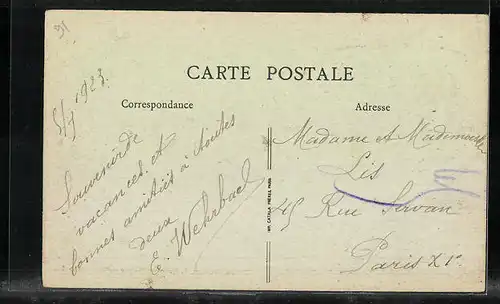 CARTE POSTALE
Correspondance
Adresse
1923
Souvenir de
vacances et
bonnes amitiés à toutes
deux
E. Wehrbach
IMP. CATALA FRÈRES, PARIS
Madame et Mademoiselle
Lis
45 Rue Servan
Paris XIe